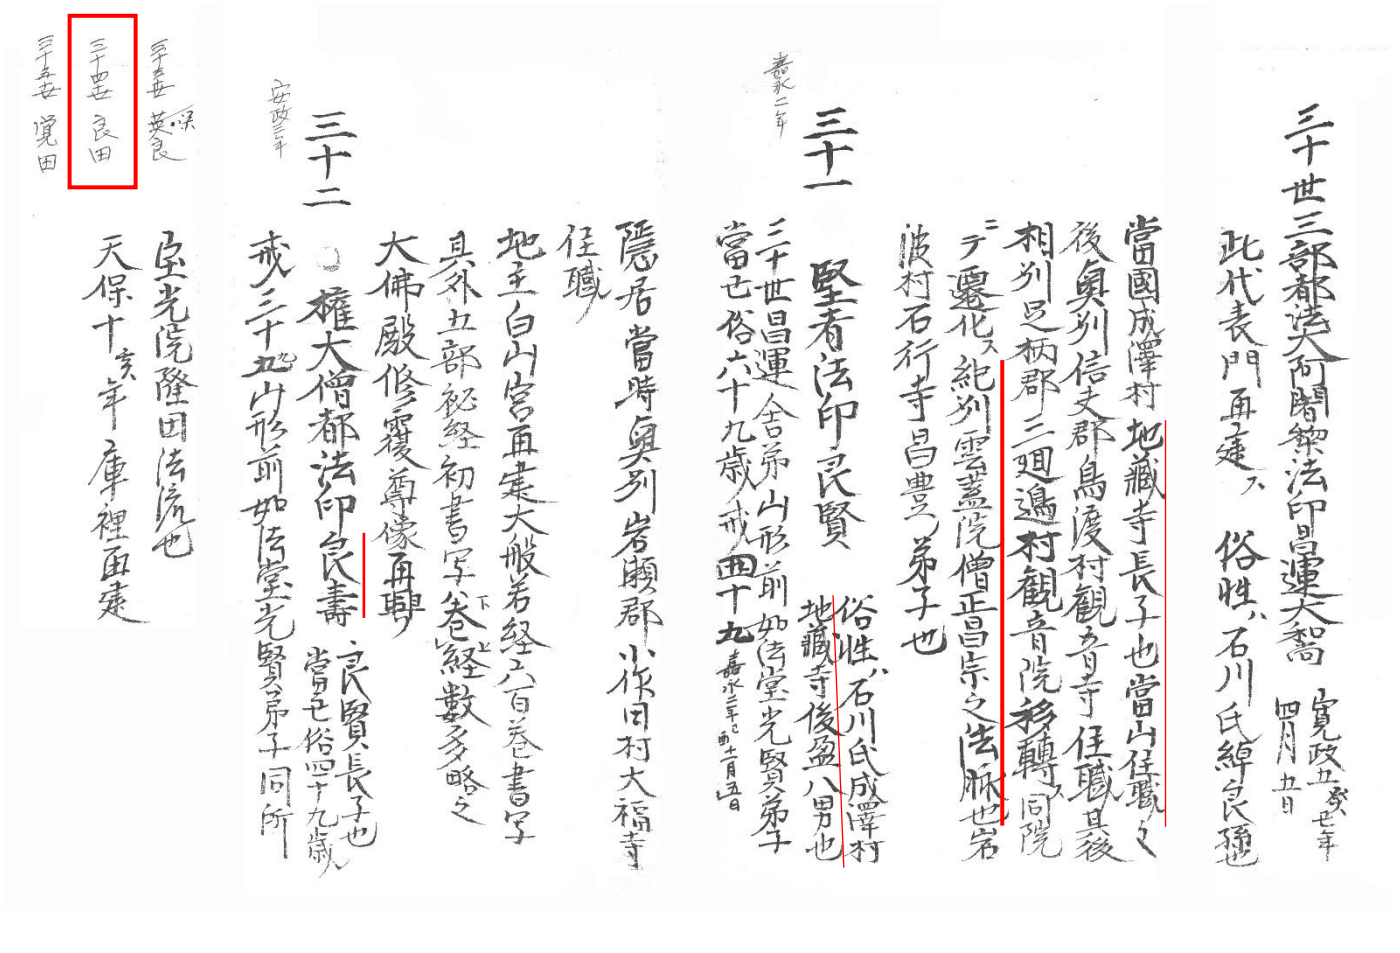 三十世三部都法大阿闍黎法印昌運大和尚
寛政五癸丑年
四月五日
此代表門再建ス 俗姓ハ石川氏綽良孫也
當國成澤村地藏寺長子也當山住職之
後奥州信夫郡鳥渡村観音寺住職其後
相州足柄郡三廻邉村観音院移轉ス同院
ニテ遷化ス紀州雲蓋院僧正昌宗之法脈也岩
波村石行寺昌豊弟子也
嘉永二年
三十一 堅者法印良賢
俗姓ハ石川氏成澤村
地藏寺後盈八男也
三十世昌運舎弟山形前如法堂光賢弟子
當已俗六十九歳戒四十九
嘉永二年己酉十一月五日
隱居當時奥州岩瀬郡小作田村大福寺
住職
地主白山宮再建大般若経六百巻書写
具外五部秘経初書写巻下経上数多略之
大佛殿修覆尊像再興
安政三年
三十二 權大僧都法印良壽
良賢長子也
當已俗四十九歳
戒三十九山形前如法堂光賢弟子同所
宝光院隆田法流也
天保十亥年庫裡再建
三十三世 英良
三十四世 良田
三十五世 覚田